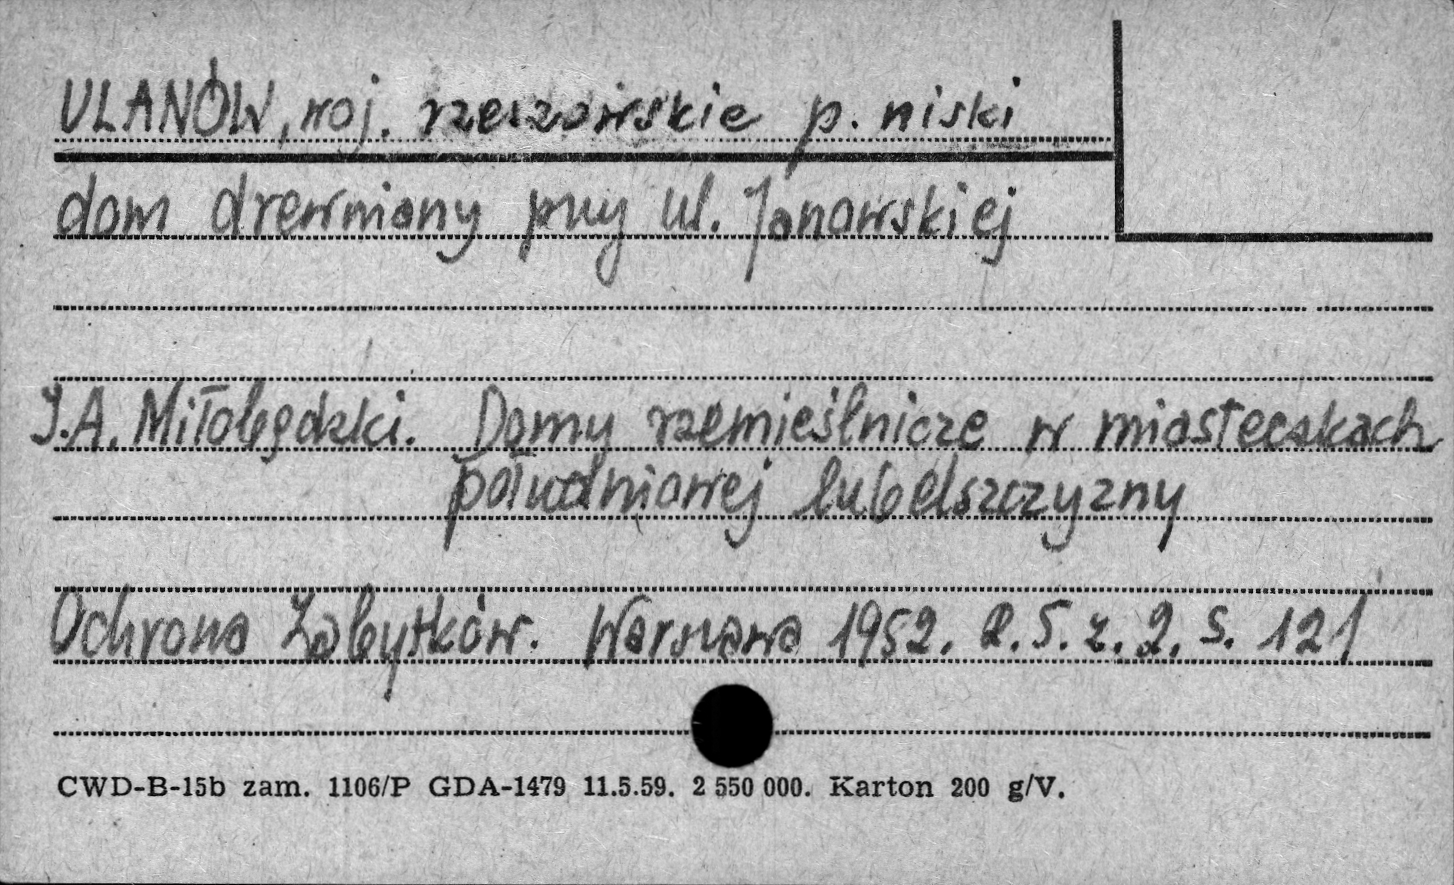 ULANÓW, woj. rzeszowskie p. niski
dom drewniany przy ul. Janowskiej
J.A. Miłobędzki. Domy rzemieślnicze w miasteczkach
południowej lubelszczyzny
Ochrona Zabytków. Warszawa 1952. R. 5. z. 2. s. 121
CWD-B-15b zam. 1106/P GDA-1479 11.5.59. 2 550 000. Karton 200 g/V.